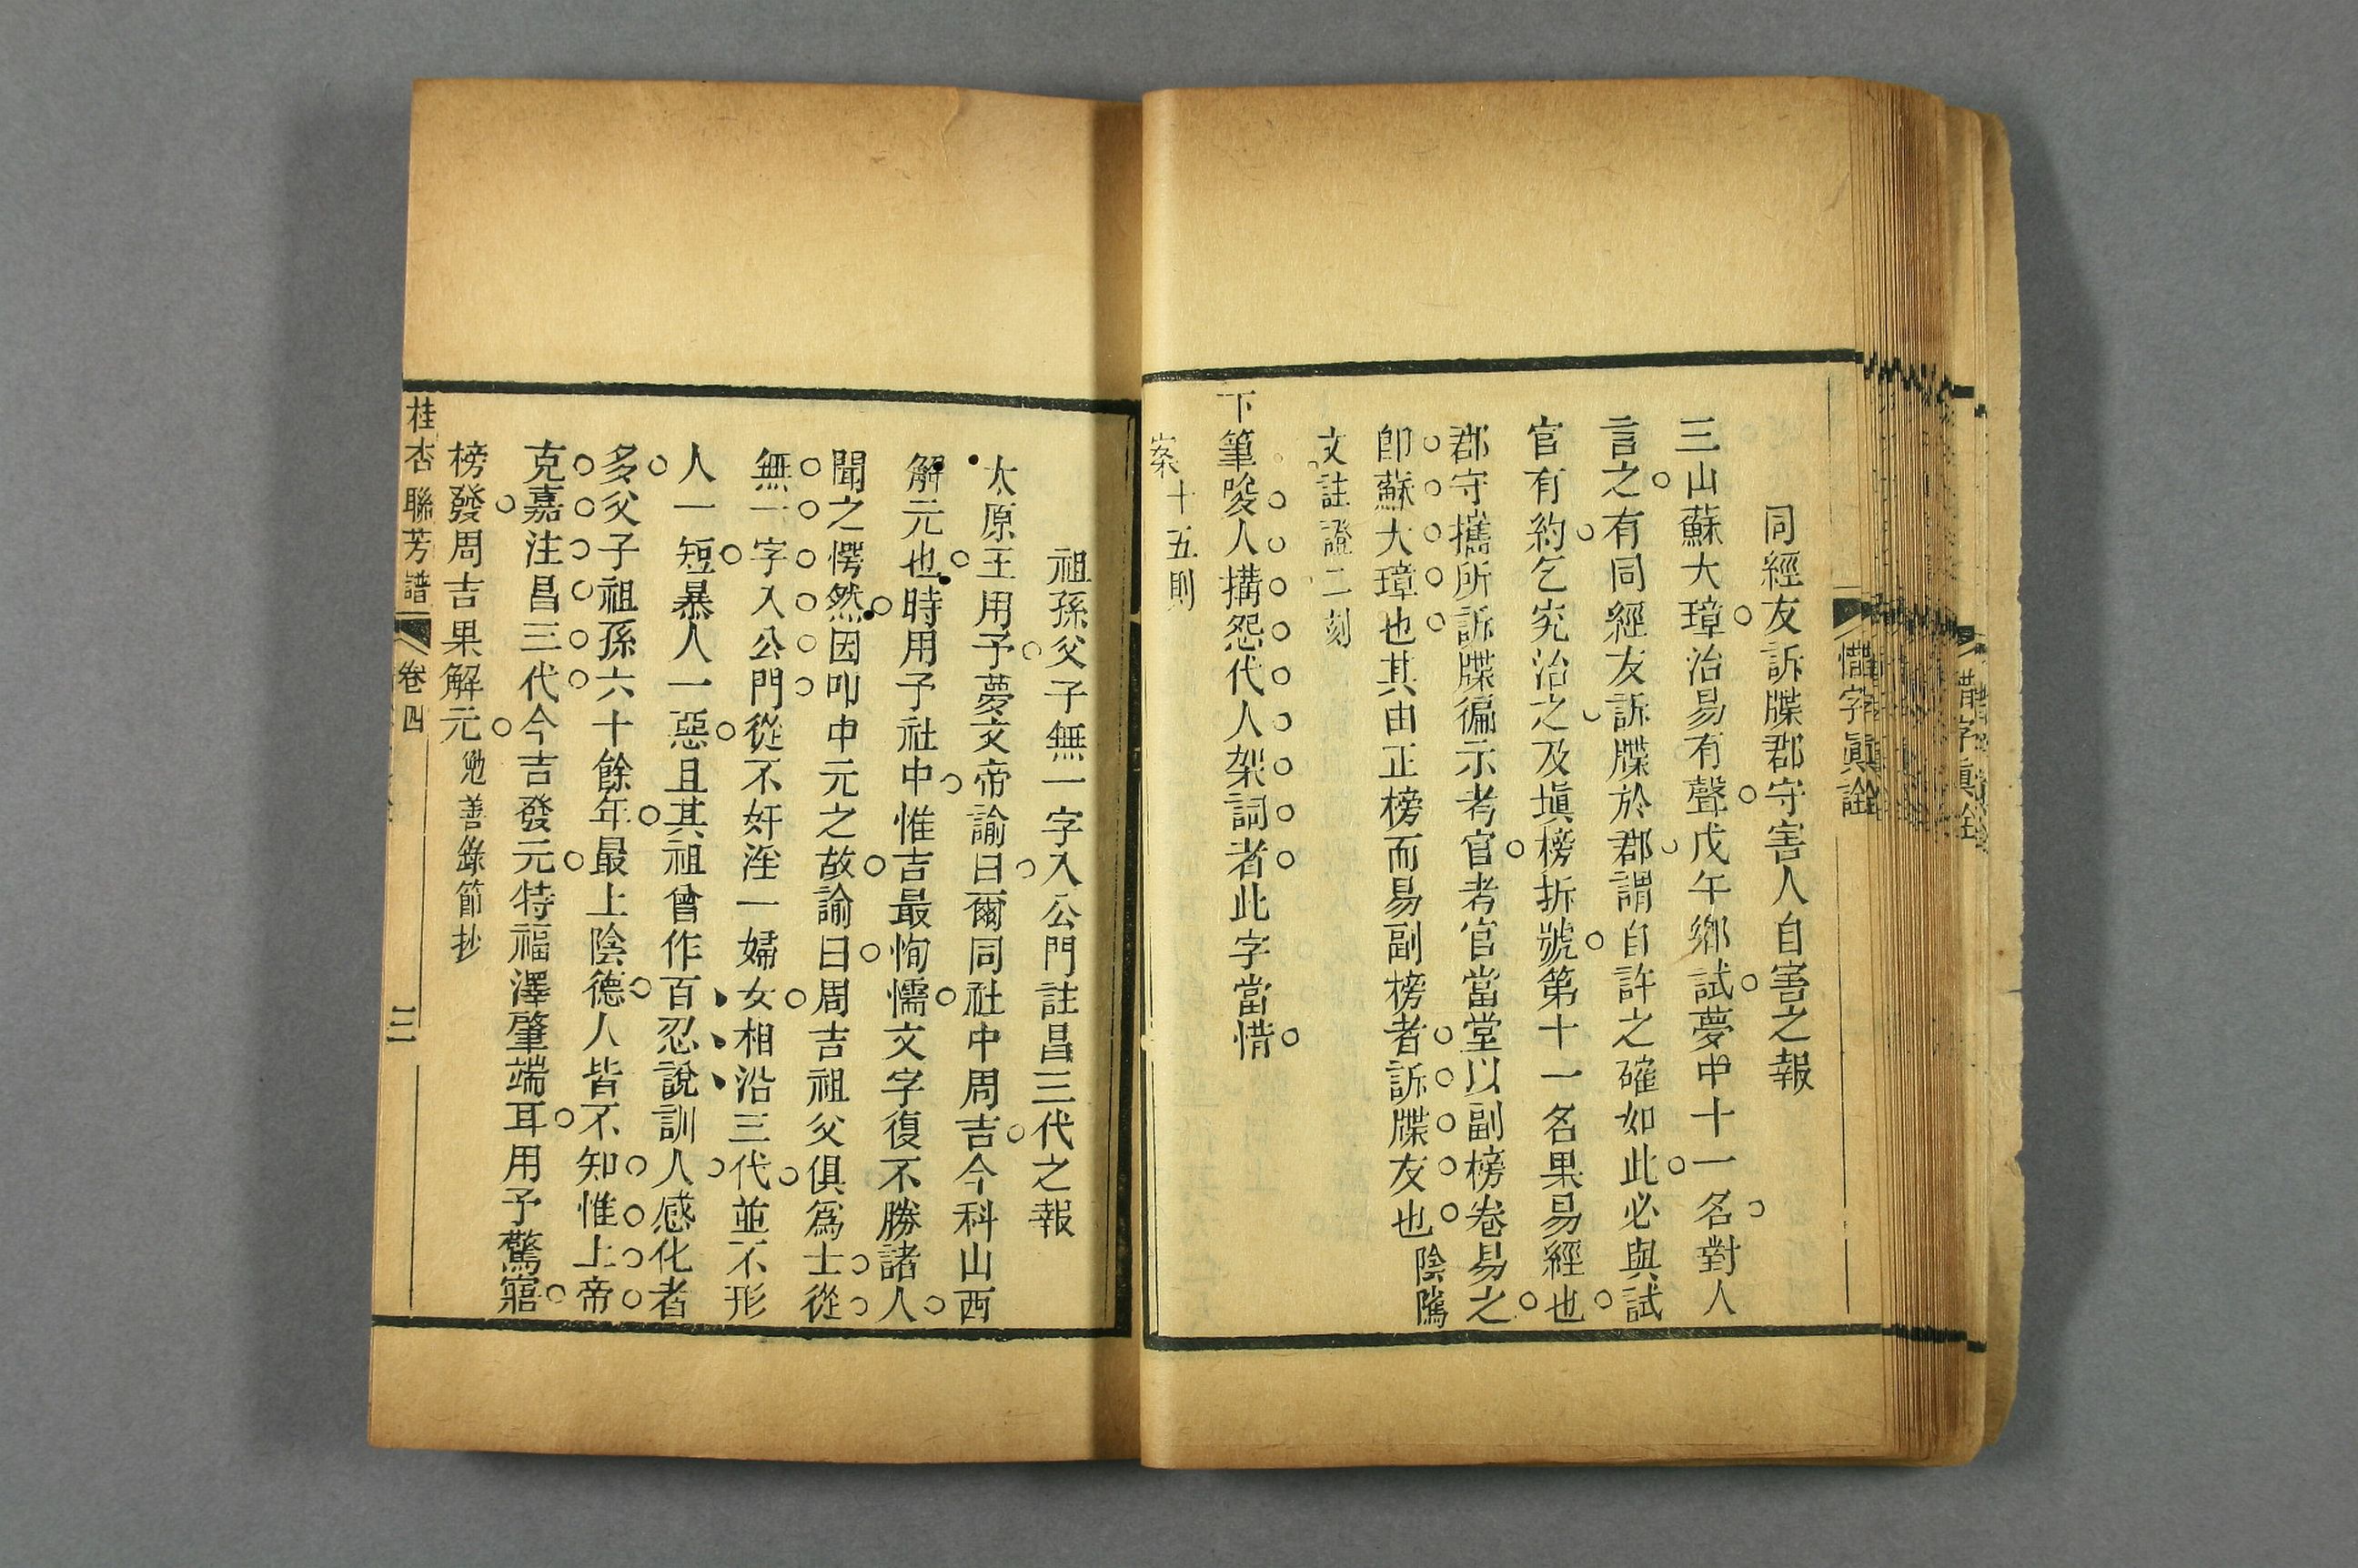 惜字眞詮
同經友訴牒郡守害人自害之報
三山蘇大璋治易有聲戊午鄉試夢中十一名對人
言之有同經友訴牒於郡謂自許之確如此必與試
官有約乞究治之及塡榜拆號第十一名果易經也
郡守攜所訴牒徧示考官考官當堂以副榜卷易之
卽蘇大璋也其由正榜而易副榜者訴牒友也陰騭
文註證二刻
下筆唆人搆怨代人架詞者此字當惜
案十五則
祖孫父子無一字入公門註昌三代之報
太原王用予夢文帝諭曰爾同社中周吉今科山西
解元也時用予社中惟吉最恂懦文字復不勝諸人
聞之愕然因叩中元之故諭曰周吉祖父俱爲士從
無一字入公門從不奸淫一婦女相沿三代並不形
人一短暴人一惡且其祖曾作百忍說訓人感化者
多父子祖孫六十餘年最上陰德人皆不知惟上帝
克嘉注昌三代今吉發元特福澤肇端耳用予驚寤
榜發周吉果解元勉善錄節抄
桂杏聯芳譜 卷四 三